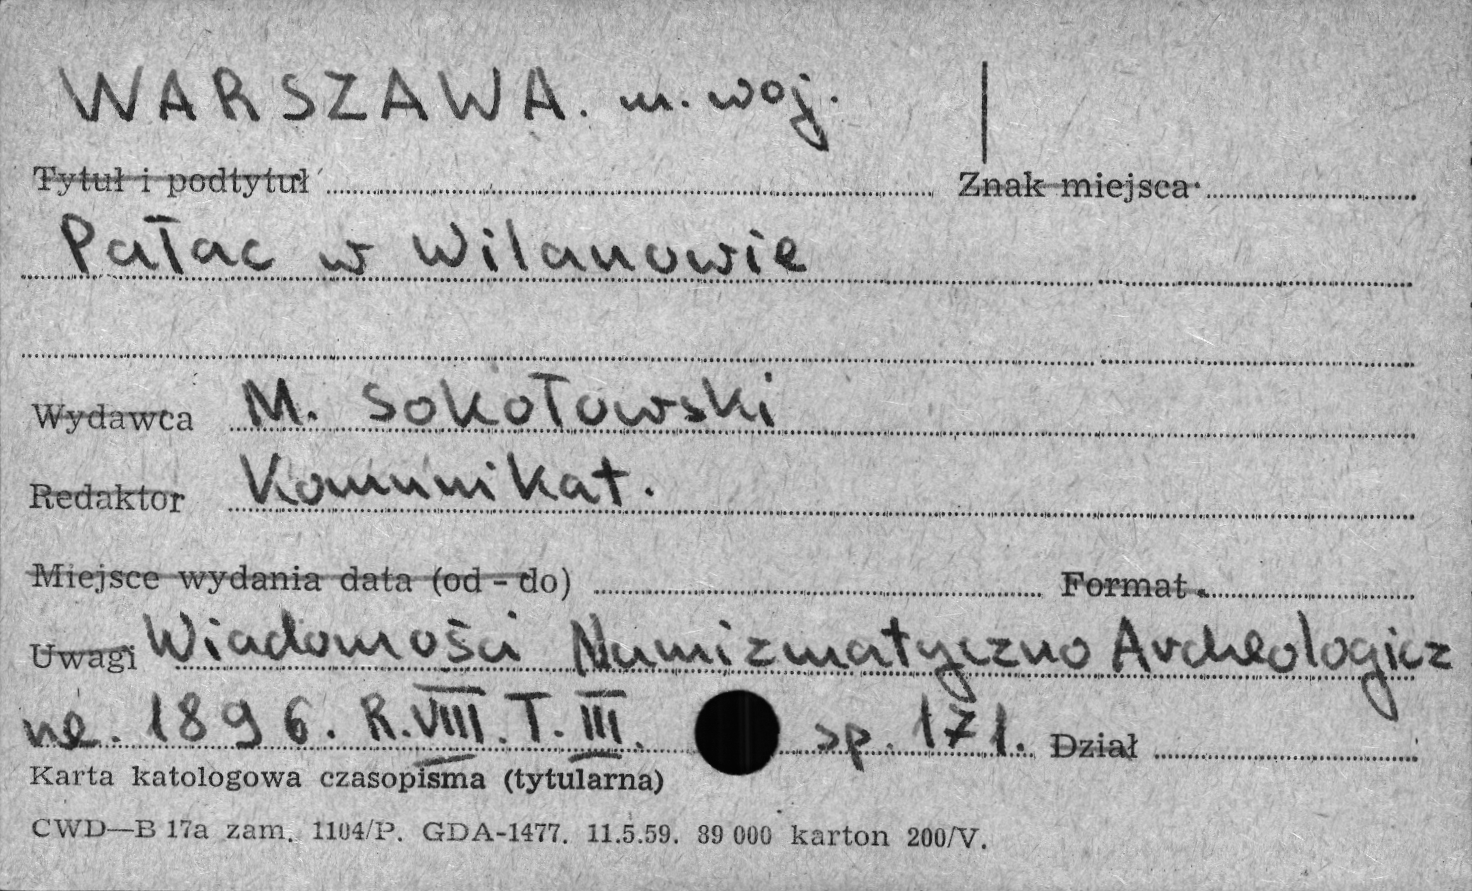 WARSZAWA. m. woj.
Tytuł i podtytuł Znak miejsca
Pałac w Wilanowie
Wydawca M. Sokołowski
Redaktor Komunikat.
Miejsce wydania data (od - do) Format
Uwagi Wiadomości Numizmatyczno Archeologicz
ne. 1896. R. VIII. T. III. sp. 171. Dział
Karta katologowa czasopisma (tytularna)
CWD—B 17a zam. 1104/P. GDA-1477. 11.5.59. 89 000 karton 200/V.